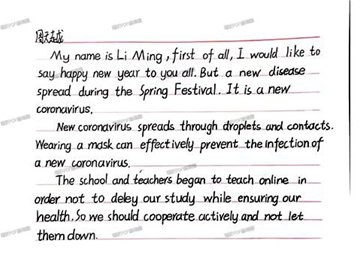 My name is Li Ming, first of all, I would like to
say happy new year to you all. But a new disease
spread during the Spring Festival. It is a new
coronavirus.
New coronavirus spreads through droplets and contacts.
Wearing a mask can effectively prevent the infection of
a new coronavirus.
The school and teachers began to teach online in
order not to deley our study while ensuring our
health. So we should cooperate actively and not let
them down.